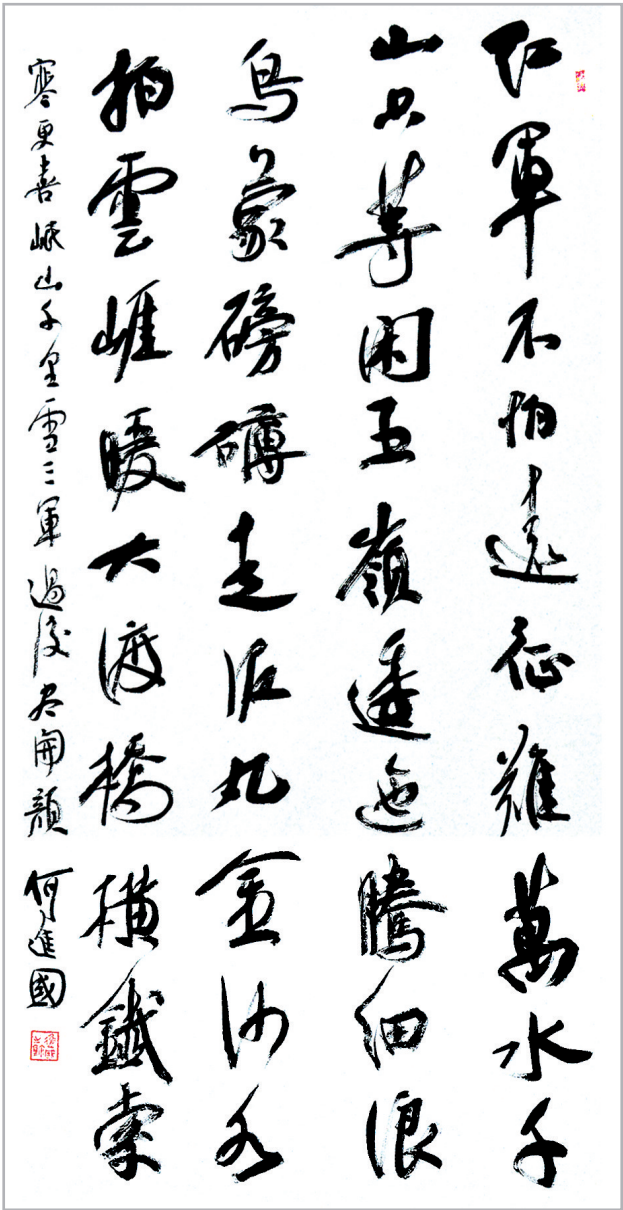 紅軍不怕遠征難萬水千
山只等閑五嶺逶迤騰細浪
烏蒙磅礴走泥丸金沙水
拍雲崖暖大渡橋橫鐵索
寒更喜岷山千里雪三軍過後盡開顏 何進國